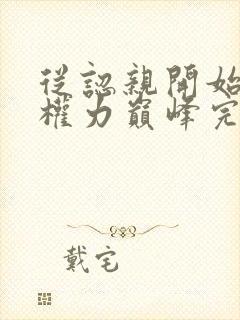 從認親開始
權力巔峰完
戴宅